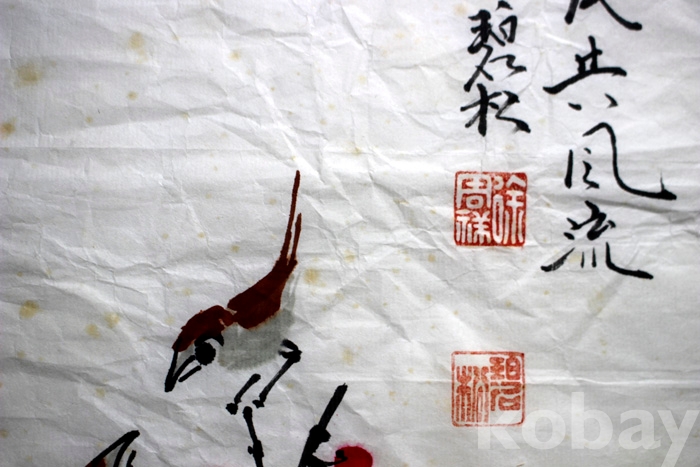 共风流
碧松
徐周祥
kobay